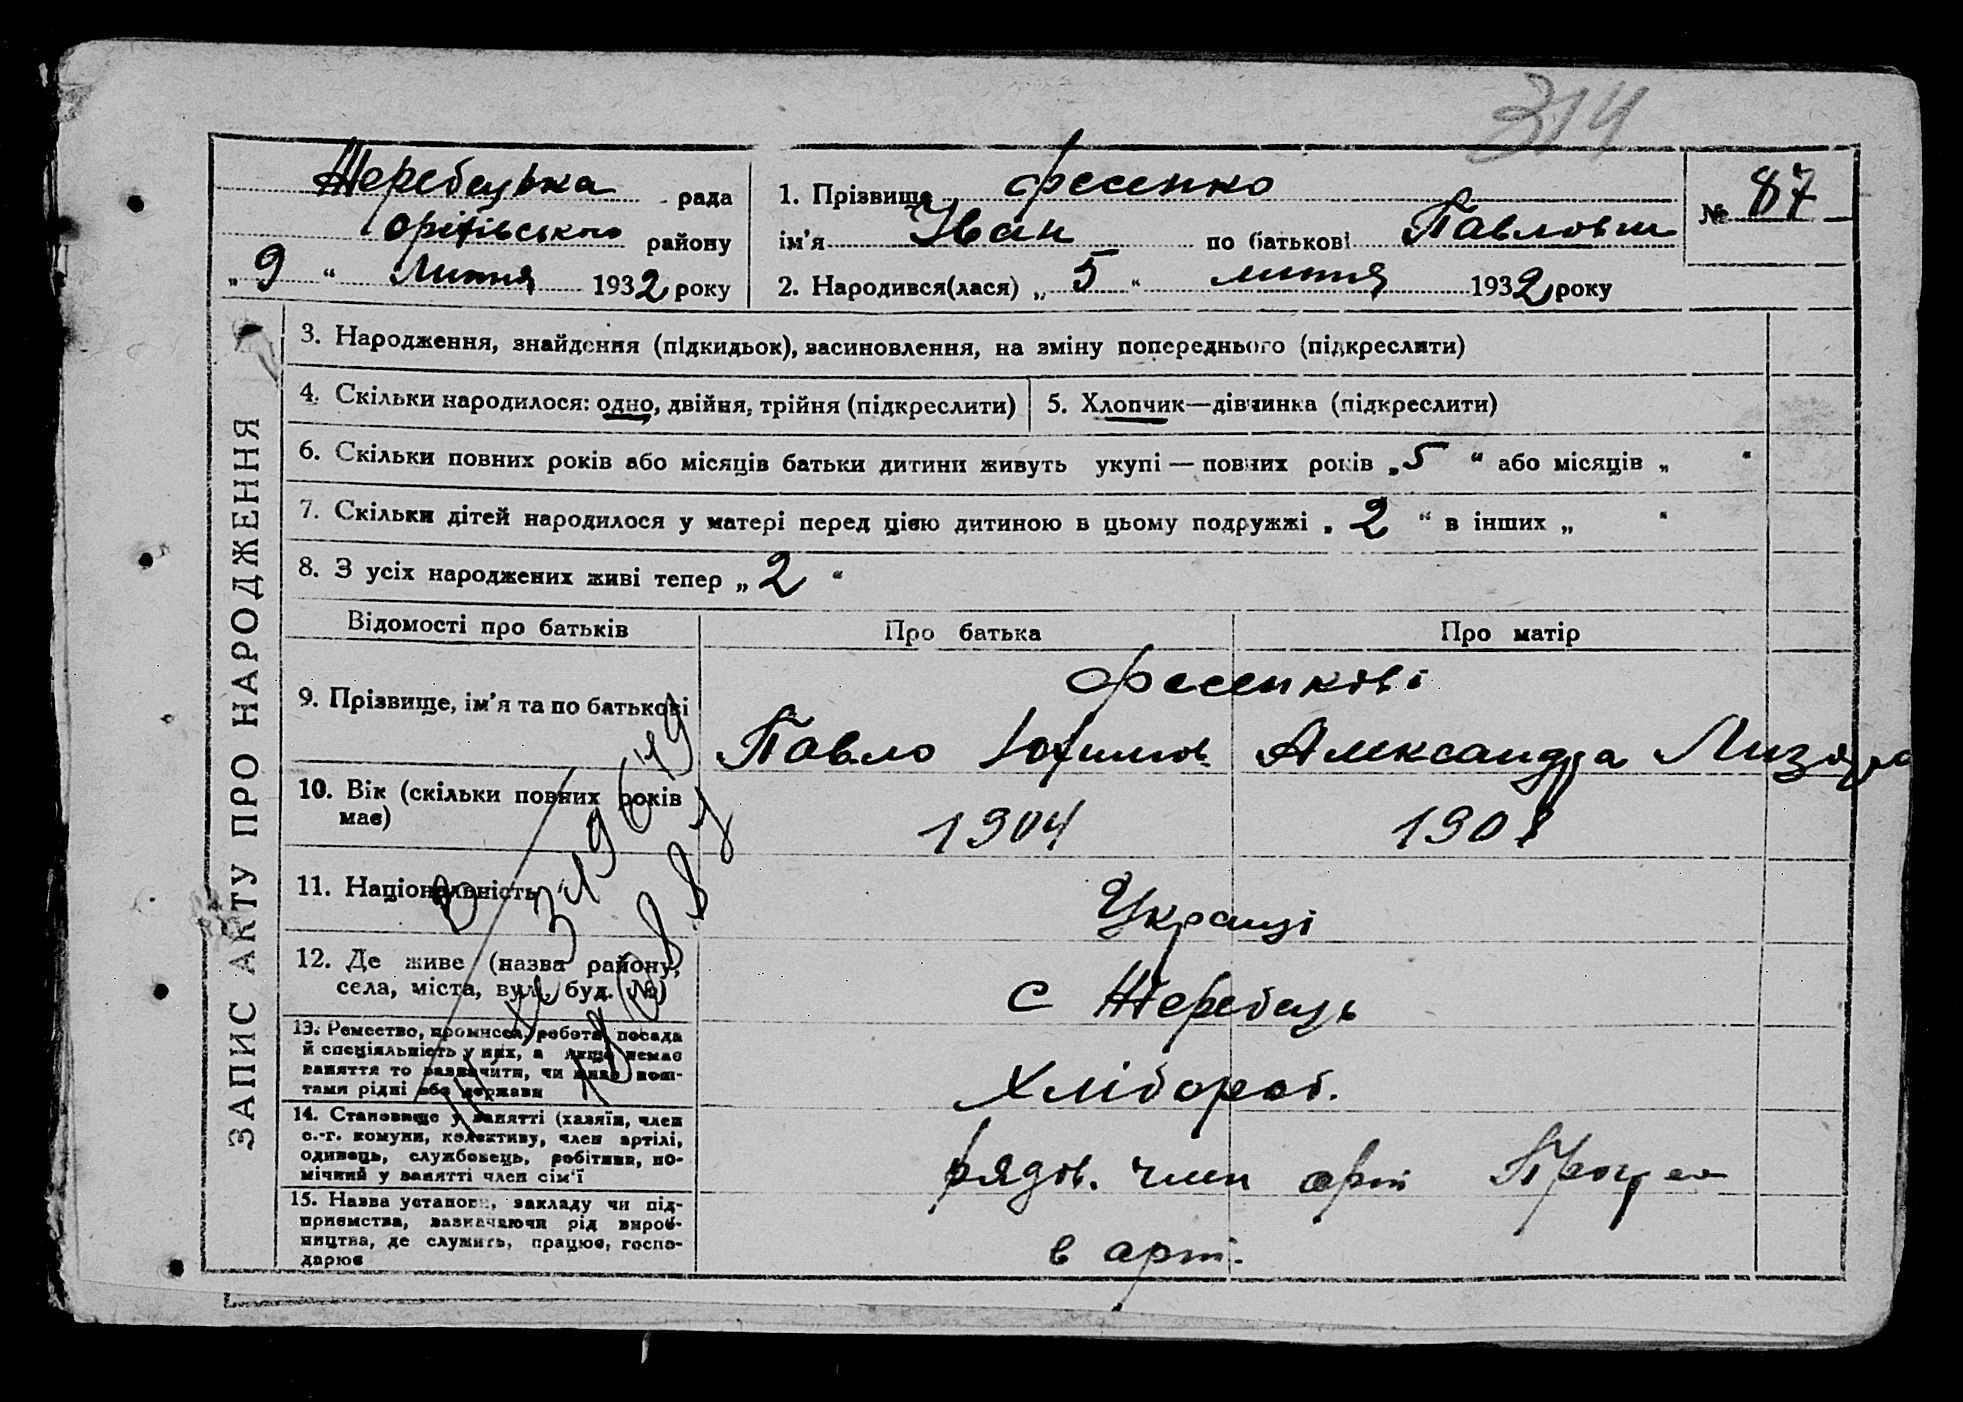 314
Жеребецька рада
Оріхівського району
„ 9 “ Липня 1932 року
1. Прізвище Фесенко
ім’я Іван по батькові Павлович
2. Народився(лася) „ 5 “ липня 1932 року
№ 87
ЗАПИС АКТУ ПРО НАРОДЖЕННЯ
3. Народження, знайдення (підкидьок), засиновлення, на зміну попереднього (підкреслити)
4. Скільки народилося: одно, двійня, трійня (підкреслити)
5. Хлопчик—дівчинка (підкреслити)
6. Скільки повних років або місяців батьки дитини живуть укупі — повних років „5 “ або місяців „ “
7. Скільки дітей народилося у матері перед цією дитиною в цьому подружжі „ 2 “ в інших „ “
8. З усіх народжених живі тепер „ 2 “
Відомості про батьків
Про батька
Про матір
9. Прізвище, ім’я та по батькові
Фесенкові
Павло Юхимов.
Александра
10. Вік (скільки повних років
має)
1904
11. Національність
Українці
12. Де живе (назва району,
села, міста, вул., буд. №)
с Жеребець
13. Ремество, промисел, робота, посада
й спеціяльність у них, а якщо немає
заняття то зазначити, чи живе кош-
тами рідні або держави
Хлібороб.
14. Становище у занятті (хазяїн, член
с.-г. комуни, колективу, член артілі,
одинець, службовець, робітник, по-
мічний у занятті член сім’ї
рядов. член арт
15. Назва установи, закладу чи під-
приємства, зазначаючи рід вироб-
ництва, де служить, працює, госпо-
дарює
в арт.